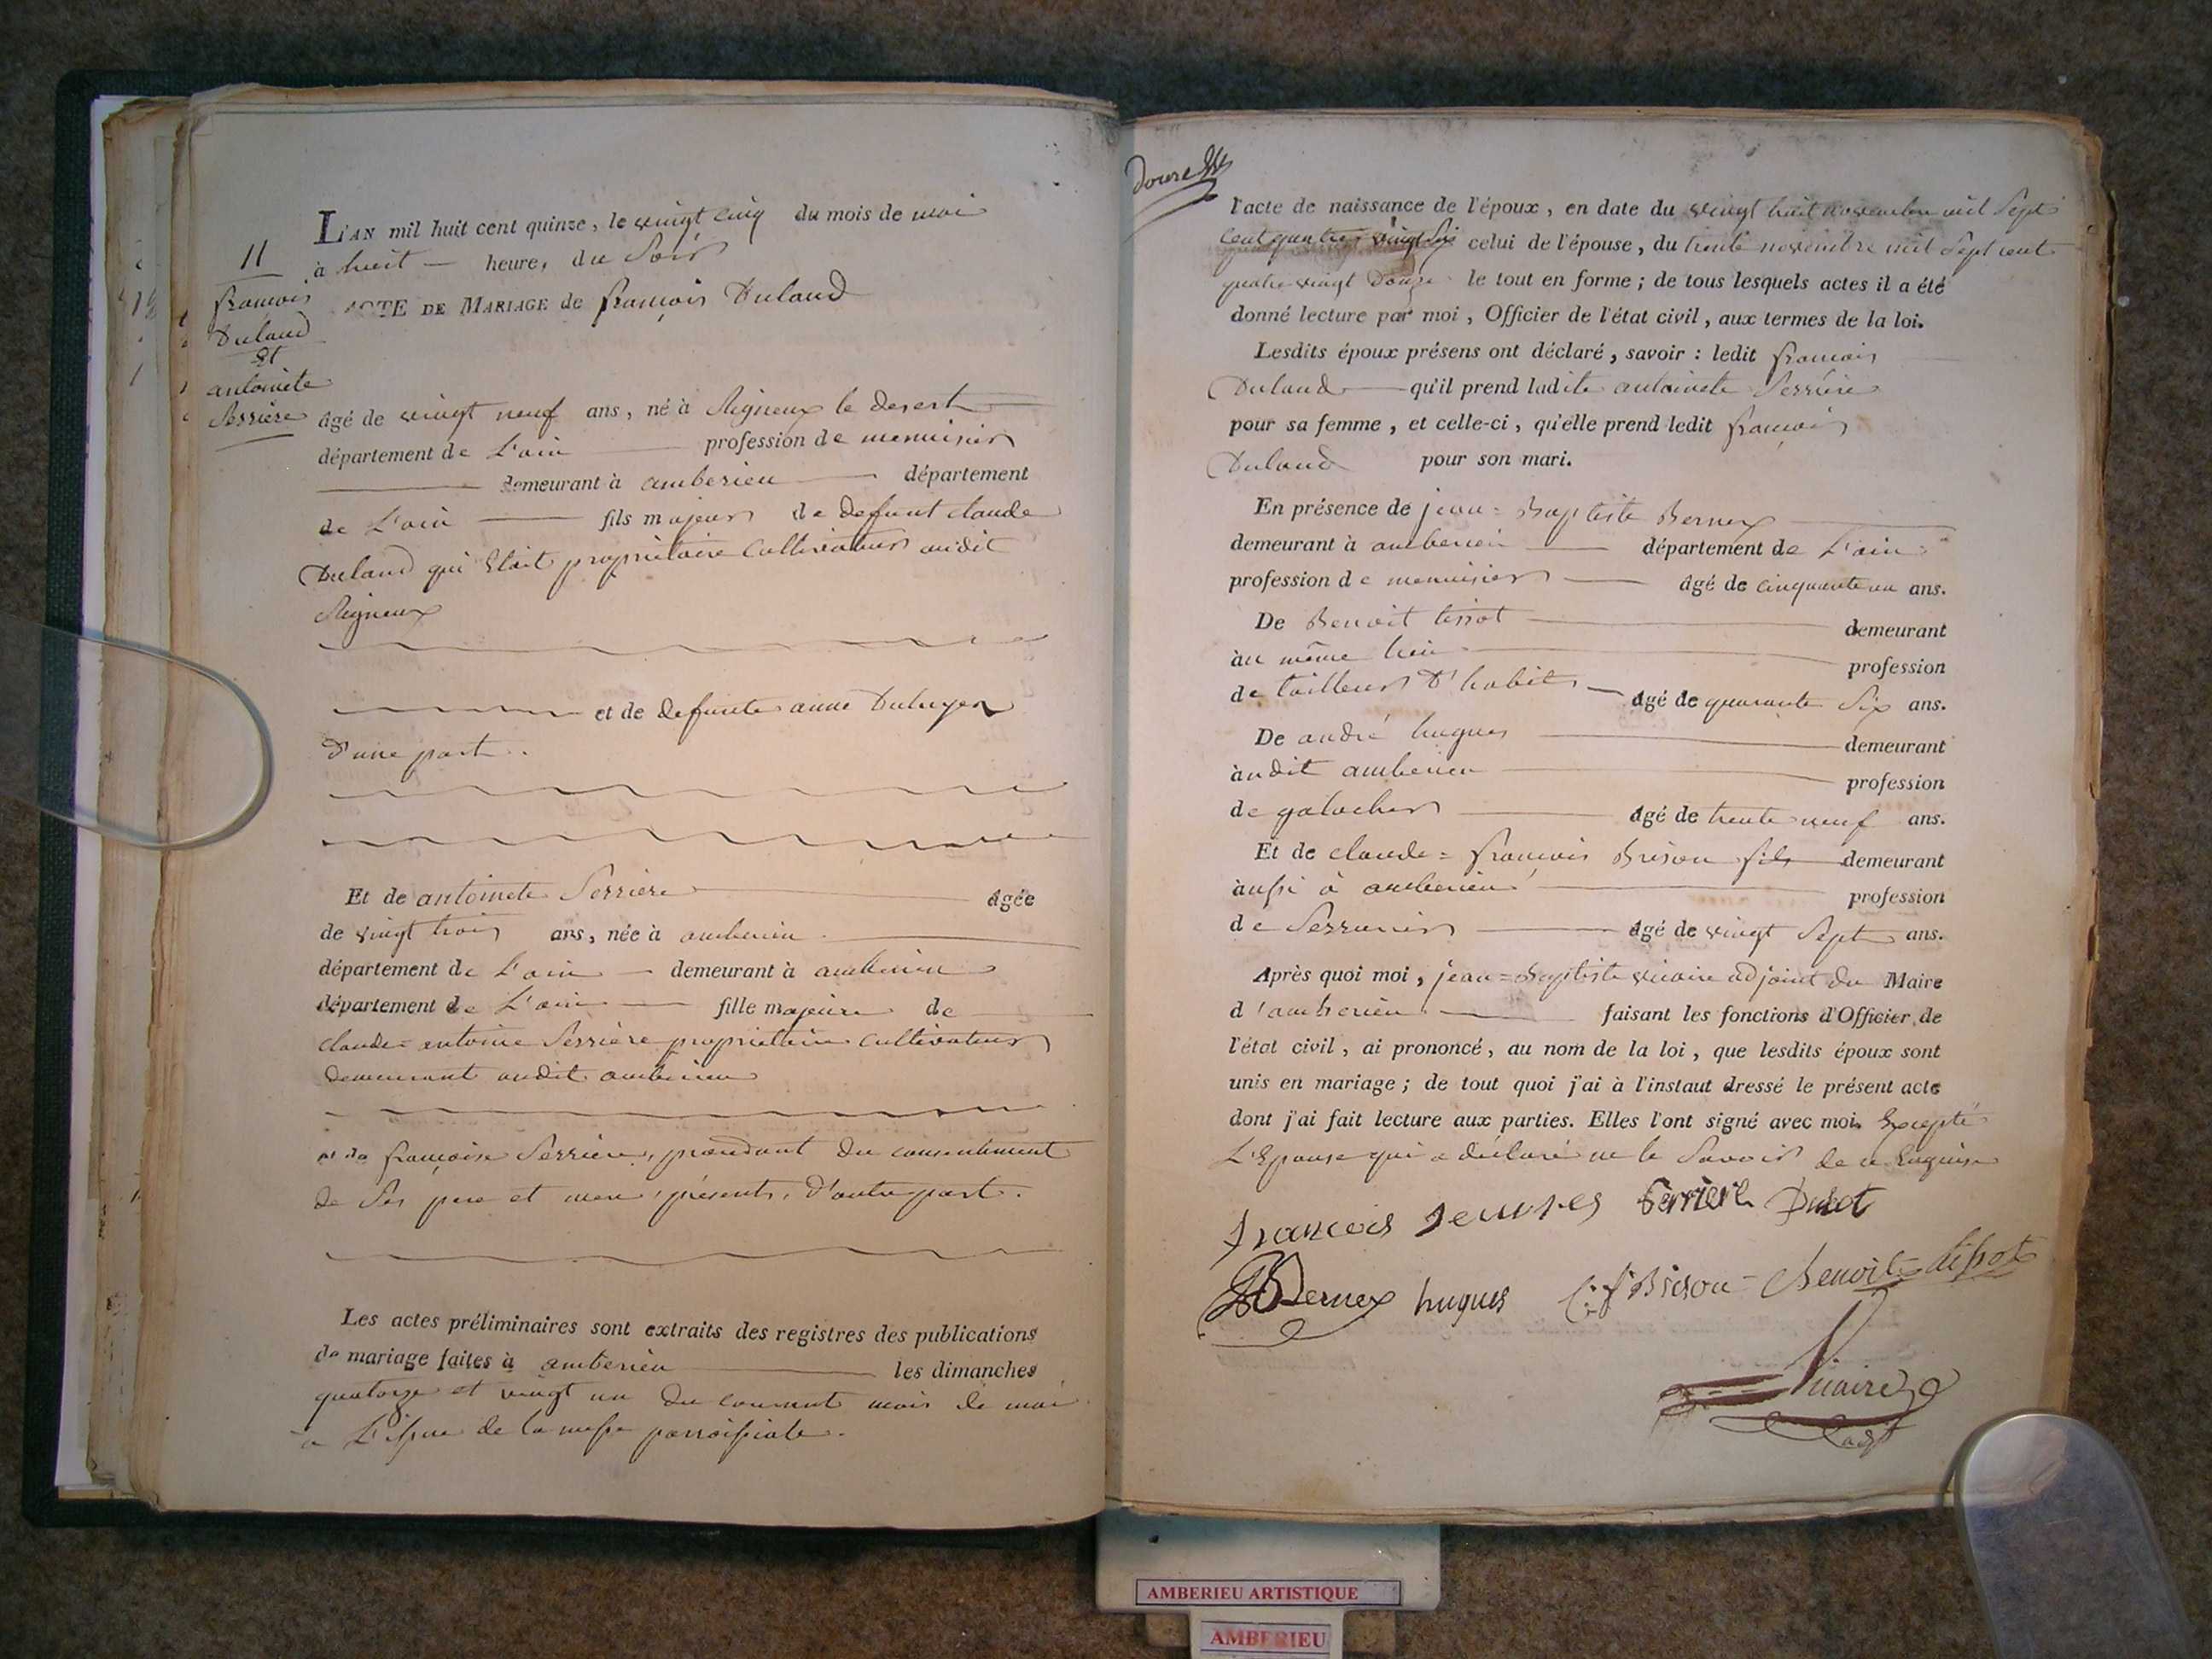 L'AN mil huit cent quinze, le vingt cinq du mois de mai
à huit heure, du Soir
11
françois
Dulaud
Et
antoinete
Serrière
ACTE DE MARIAGE de françois Dulaud
âgé de vingt neuf ans, né à Rigneux le desert
département de L'ain profession de menuisier
demeurant à amberieu département
de L'ain fils majeur de defunt claude
Dulaud qui Etait proprietaire Cultivateur audit
Rigneux
et de defunte anne
D'une part.
Et de antoinete Serrière âgée
de vingt trois ans, née à amberieu
département de L'ain demeurant à amberieu
département de L'ain fille majeure de
claude=antoine Serrière proprietaire Cultivateur
demeurant audit amberieu
et de françoise Serrière, procedant du consentement
de Ses pere et mere, présents, D'autre part.
Les actes préliminaires sont extraits des registres des publications
de mariage faites à amberieu les dimanches
quatorze et vingt un du courant mois de mai
a L'issue de la messe parroissiale.
Douze
l'acte de naissance de l'époux, en date du vingt huit novembre mil Sept
Cent quatre vingt Six celui de l'épouse, du trente novembre mil Sept cent
quatre vingt Douze le tout en forme; de tous lesquels actes il a été
donné lecture par moi, Officier de l'état civil, aux termes de la loi.
Lesdits époux présens ont déclaré, savoir : ledit françois
Dulaud qu'il prend ladite antoinete Serrière
pour sa femme, et celle-ci, qu'elle prend ledit françois
Dulaud pour son mari.
En présence de jean=Baptiste Bernex
demeurant à amberieu département de L'ain
profession de menuisier âgé de cinquante un ans.
De Benoit tissot demeurant
au même lieu profession
de tailleur D'habits âgé de quarante Six ans.
De andré hugues demeurant
audit amberieu profession
de galocher âgé de trente neuf ans.
Et de claude=françois Brison fils demeurant
aussi à amberieu profession
de Serrurier âgé de vingt Sept ans.
Après quoi moi, jean=Baptiste vicaire adjoint du Maire
d'amberieu faisant les fonctions d'Officier de
l'état civil, ai prononcé, au nom de la loi, que lesdits époux sont
unis en mariage; de tout quoi j'ai à l'instaut dressé le présent acte
dont j'ai fait lecture aux parties. Elles l'ont signé avec moi. Excepté
L'Epouse qui a déclaré ne le Savoir de ce Enquise
francois Serriere
Bernex hugues C: f Brison Benoit tissot
Vicaire
adjt
AMBERIEU ARTISTIQUE
AMBERIEU